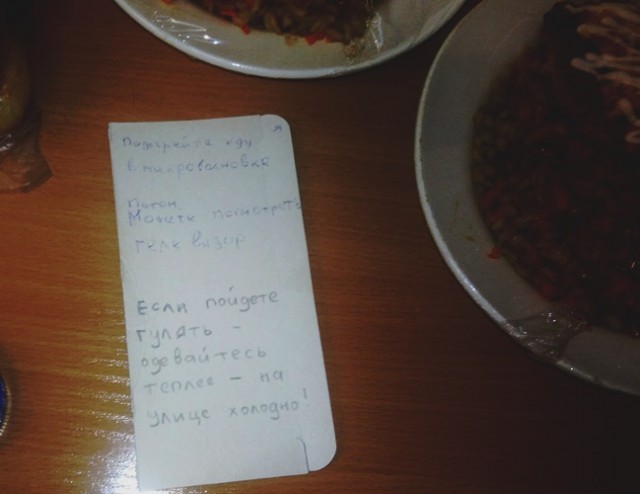 Подогрейте еду
в микроволновке
потом
Можете посмотреть
телевизор
Если пойдете
гулять -
одевайтесь
теплее - на
улице холодно!